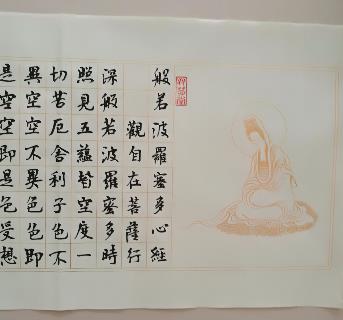 般若波羅蜜多心經
觀自在菩薩行
深般若波羅蜜多時
照見五蘊皆空度一
切苦厄舍利子色不
異空空不異色色即
是空空即是色受想